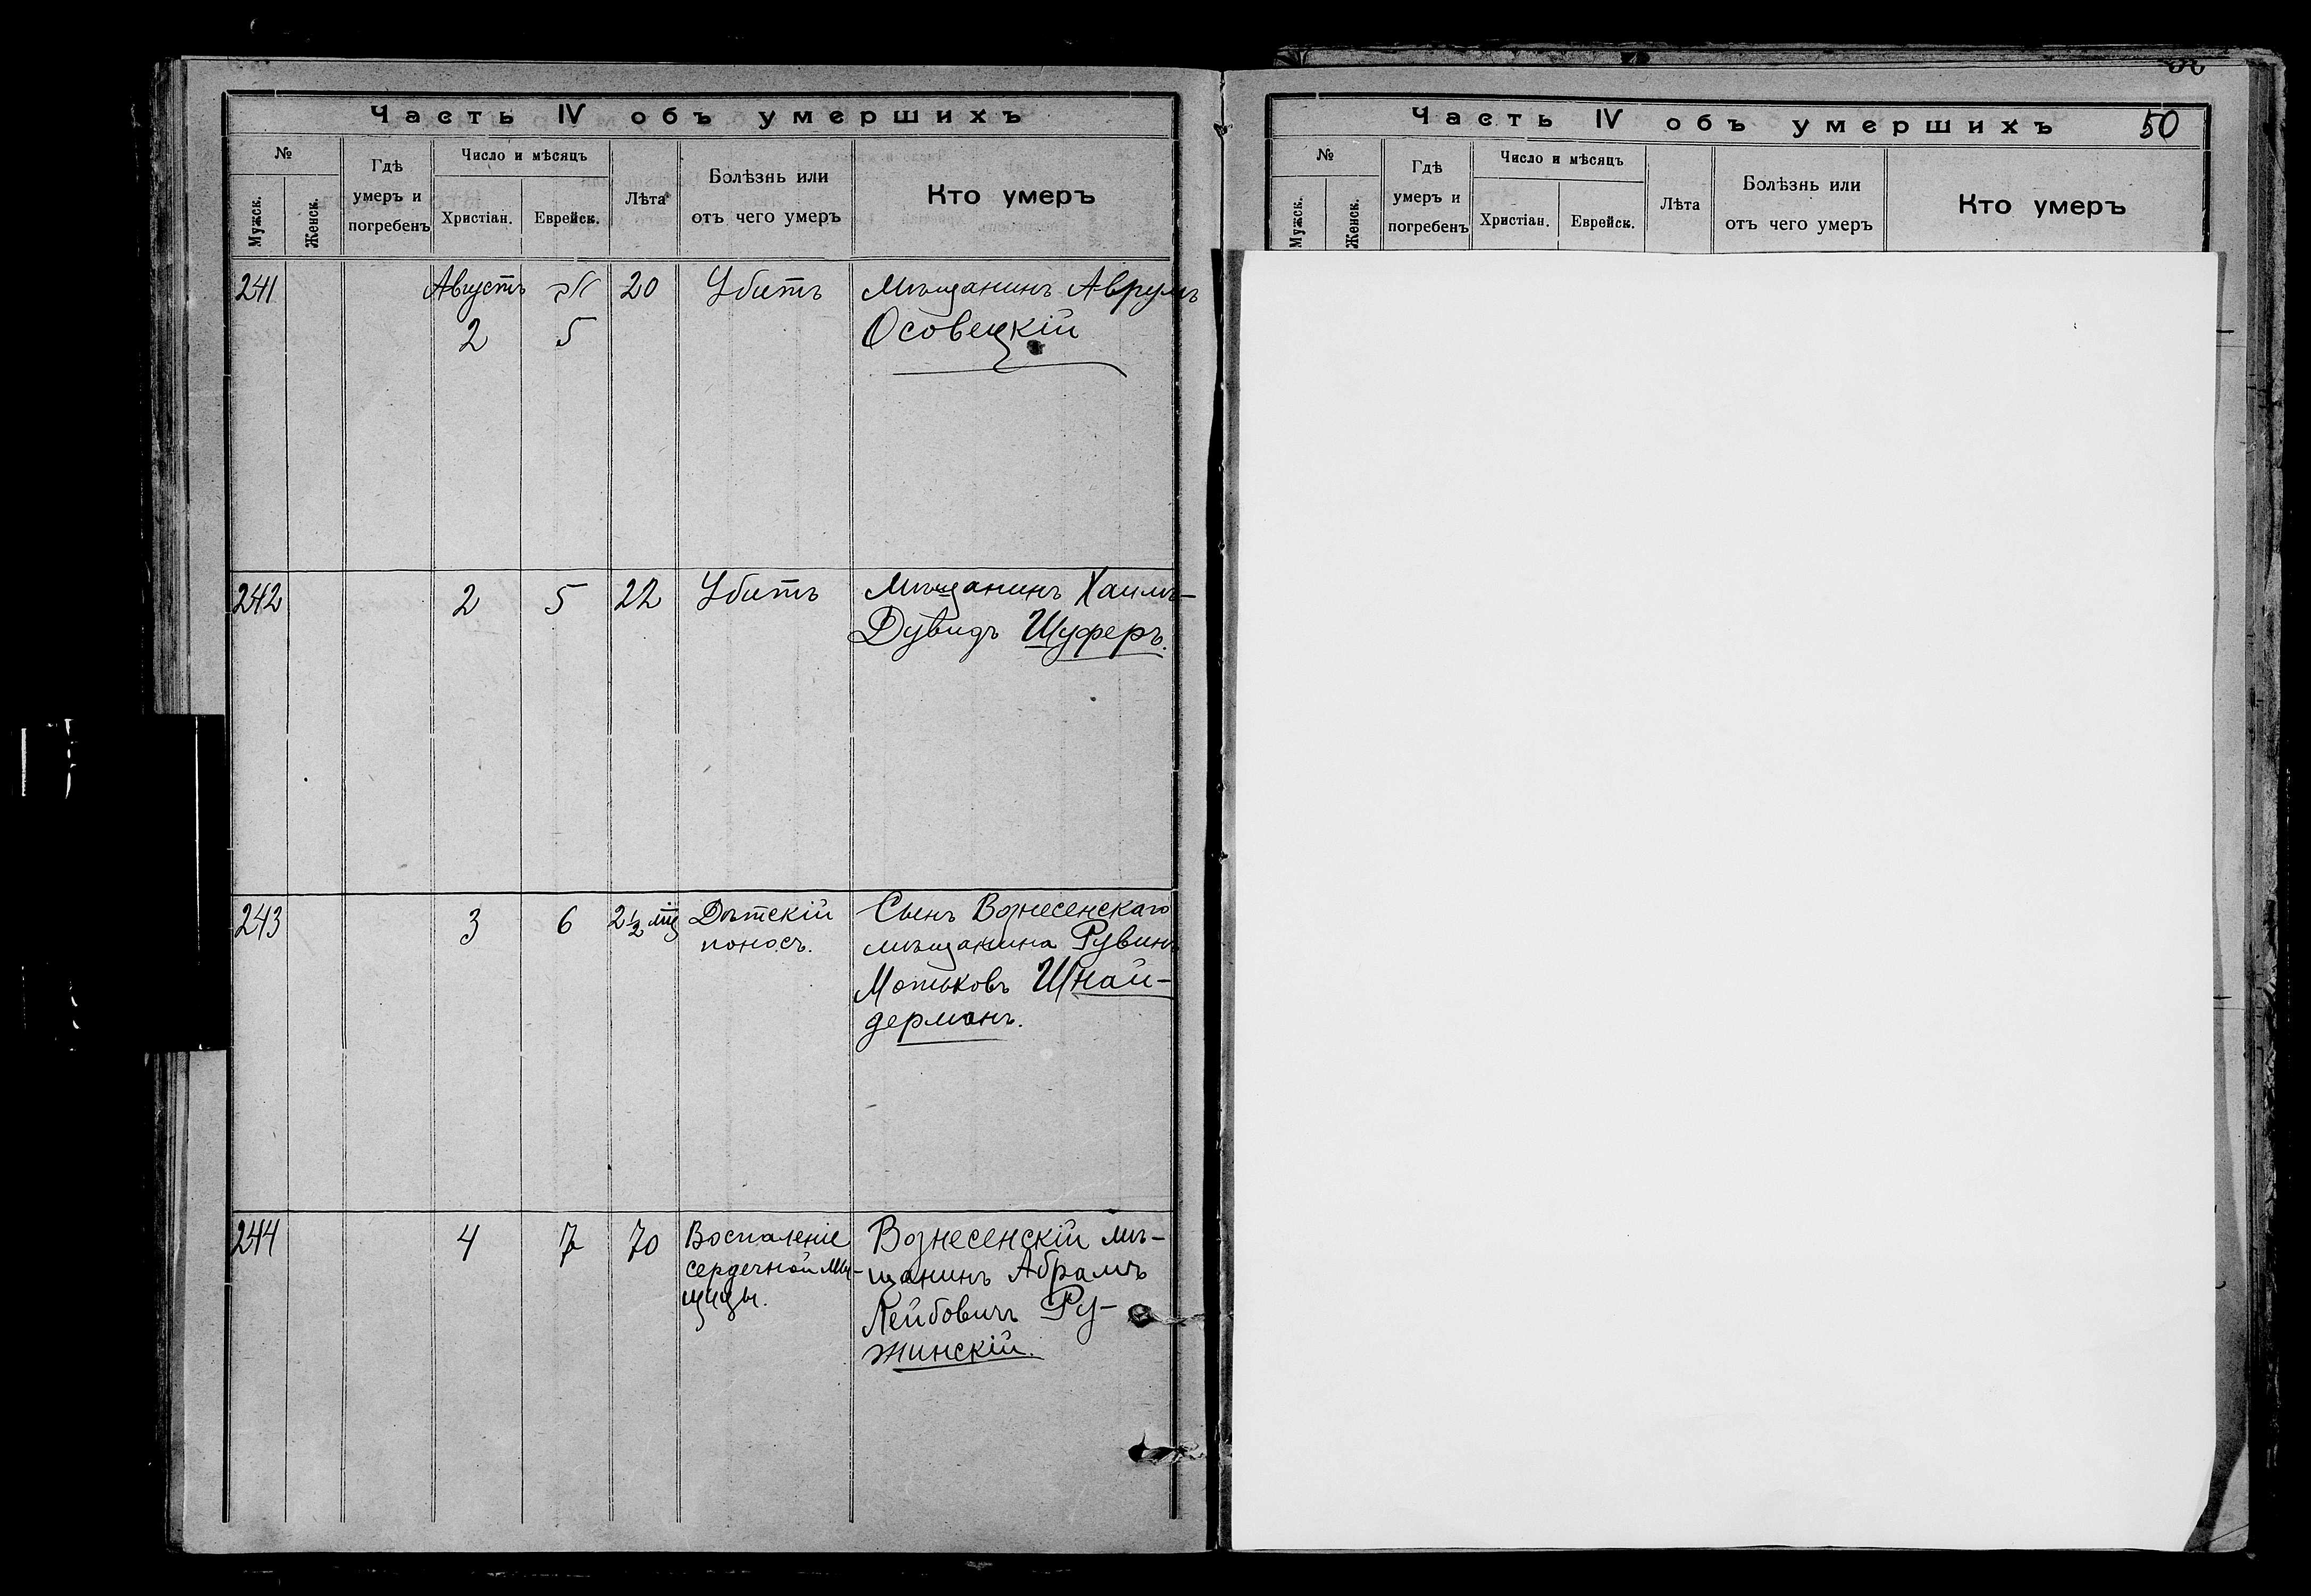 Часть IV объ умершихъ
№
Мужск.
Женск.
Гдѣ
умеръ и
погребенъ
Число и мѣсяцъ
Христіан.
Еврейск.
Лѣта
Болѣзнь или
отъ чего умеръ
Кто умеръ
241
Августъ
2
אב
5
20
Убитъ
Мѣщанинъ Аврумъ
Осовецкій
242
2
5
22
Убитъ
Мѣщанинъ Хаимъ-
Дувидъ Шуферъ.
243
3
6
2½ мц
Дѣтскій
поносъ.
Сынъ Вознесенскаго
мѣщанина Рувинъ
Мотьковъ Шнай-
дерманъ.
244
4
7
70
Воспаленіе
сердечной мы-
шцы.
Вознесенскій мѣ-
щанинъ Абрамъ
Лейбовичъ Ру-
жинскій.
Часть IV объ умершихъ
50
№
Мужск.
Женск.
Гдѣ
умеръ и
погребенъ
Число и мѣсяцъ
Христіан.
Еврейск.
Лѣта
Болѣзнь или
отъ чего умеръ
Кто умеръ